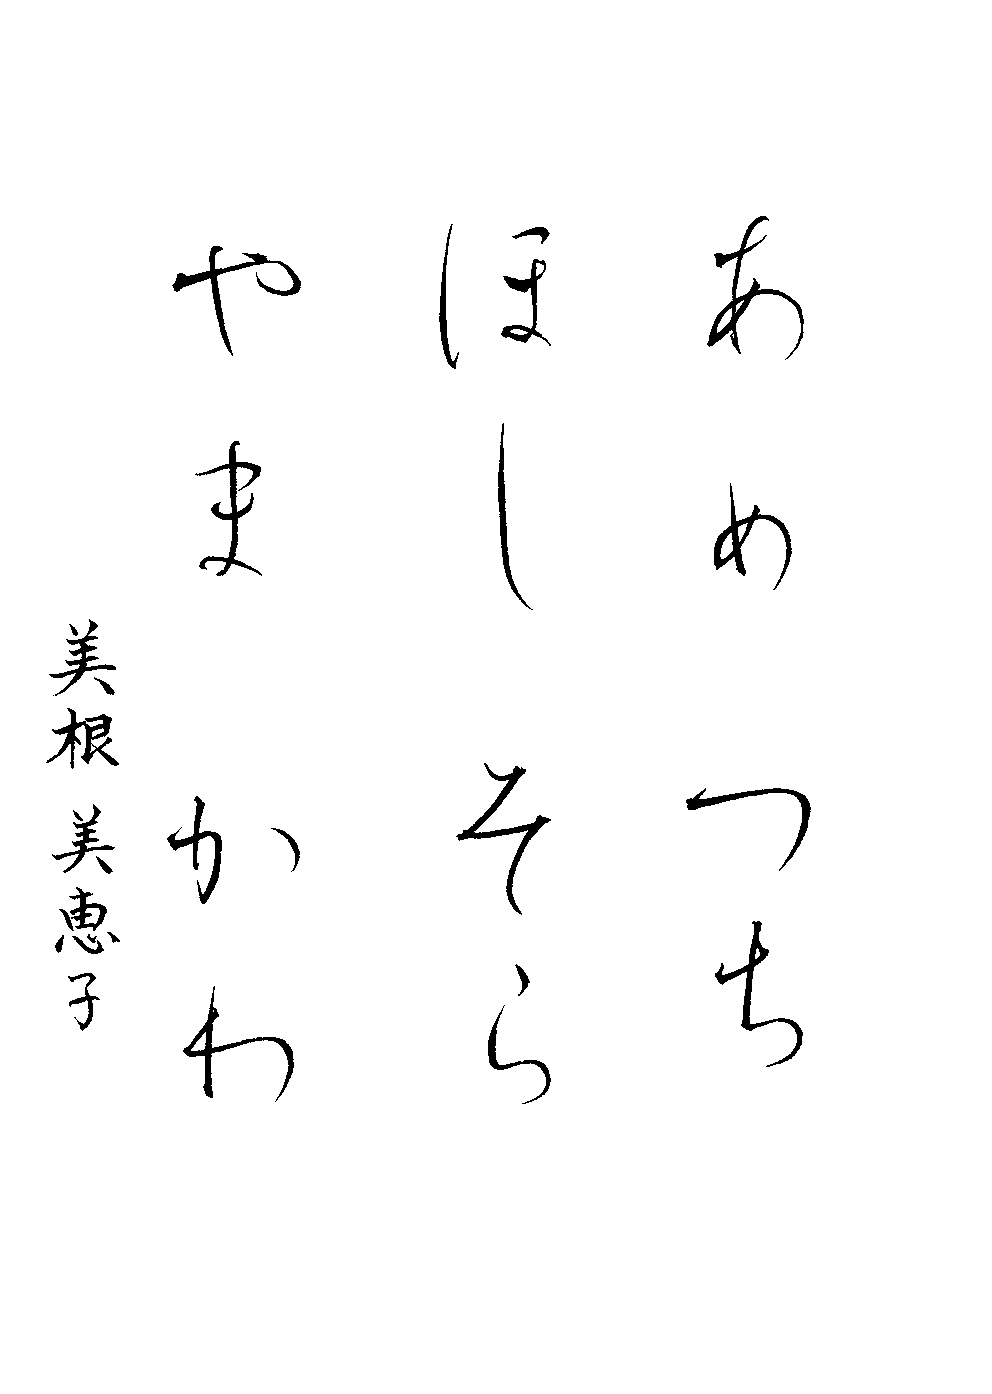 あめ つち
ほし そら
やま かわ
美根 美恵子